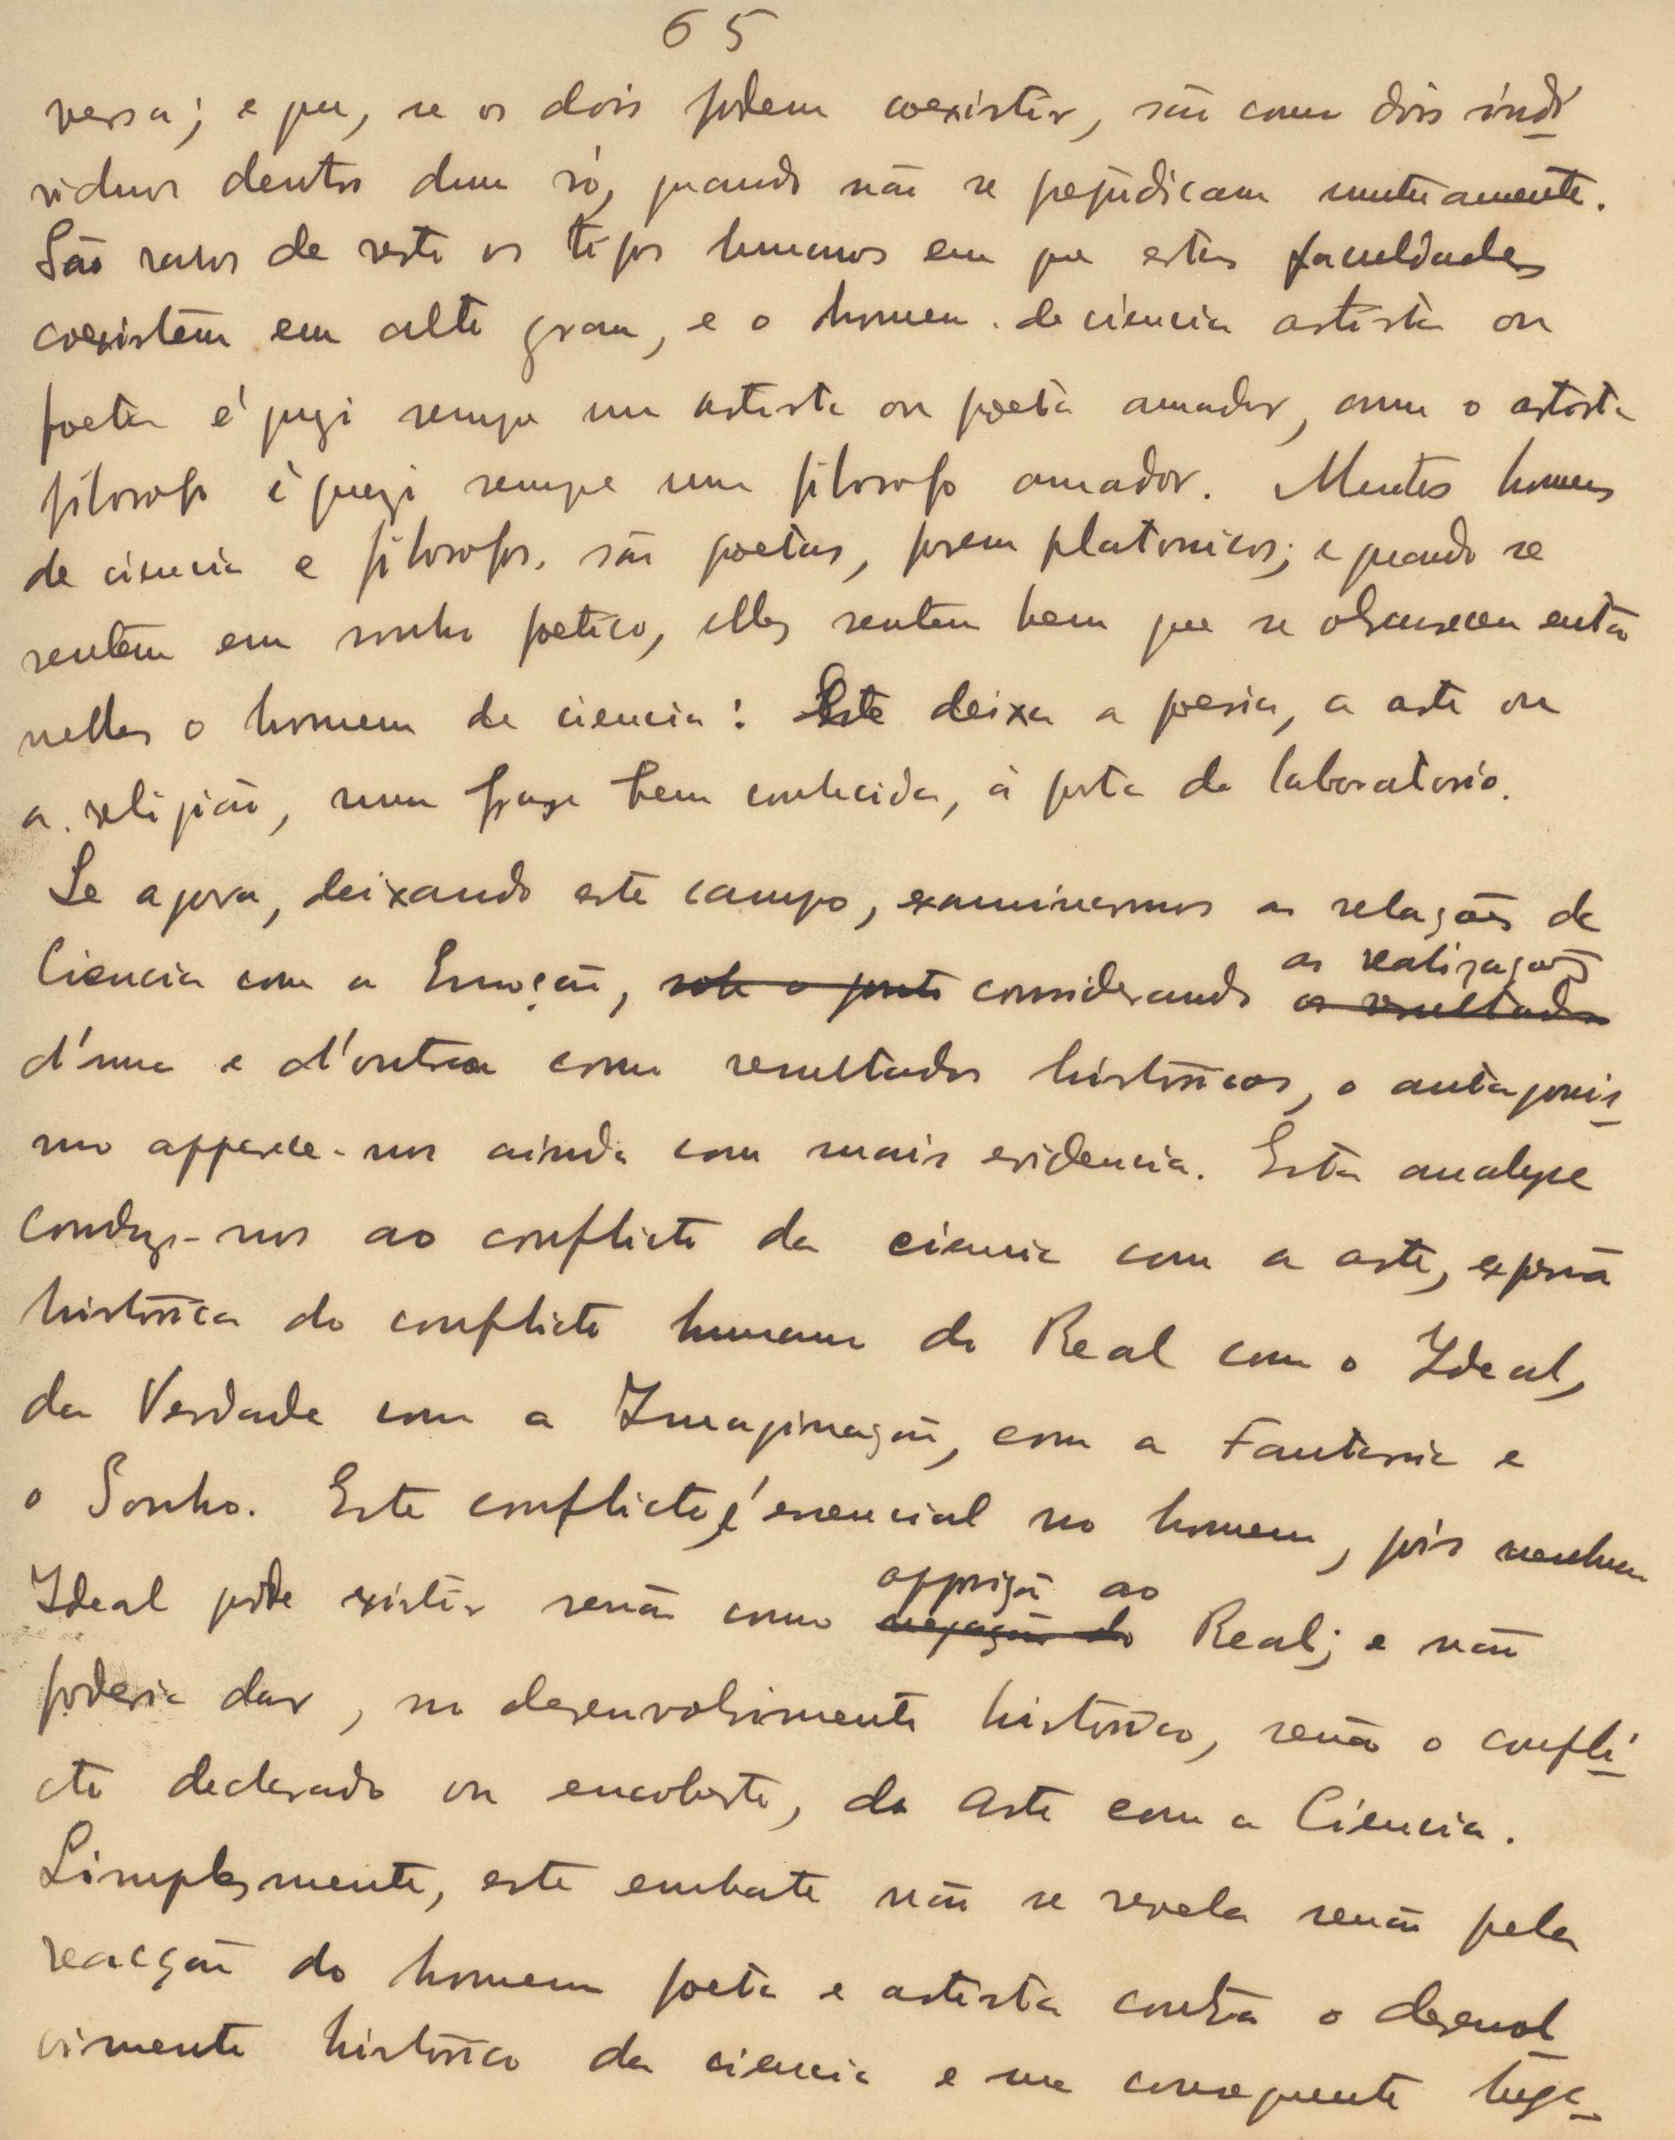 65
versa; e que, se os dois podem coexistir, são como dois indi
viduos dentro dum só, quando não se prejudicam mutuamente.
São raros de resto os tipos humanos em que estas faculdades
coexistem em alto grau, e o homem de ciencia artista ou
poeta é quazi sempre um artista ou poeta amador, como o artista
filosofo é quazi sempre um filosofo amador. Muitos homens
de ciencia e filosofos, são poetas, porem platonicos; e quando se
sentem em sonho poetico, elles sentem bem que se obscurecem então
nelles o homem de ciencia: Este deixa a poesia, a arte ou
a religião, numa fraze bem conhecida, à porta do laboratorio.
Se agora, deixando este campo, examinarmos as relações da
Ciencia com a Emoção, sob o ponto considerando os resultados
as realizações
d'uma e d'outra como resultados históricos, o antagonis
mo apparece-nos ainda com mais evidencia. Esta analyse
conduz-nos ao conflicto da ciencia com a arte,
histórica do conflicto humano do Real com o Ideal,
da Verdade com a Imaginação, com a Fantasia e
o Sonho. Este conflicto é essencial no homem, pois nenhum
Ideal pode existir senão como negação do Real; e não
opposição ao
poderia dar, no desenvolvimento histórico, senão o confli
cto declarado ou encoberto, da Arte com a Ciencia.
Simplesmente, este embate não se revela senão pela
reacção do homem poeta e artista contra o desenvol
vimento histórico da ciencia e sua consequente